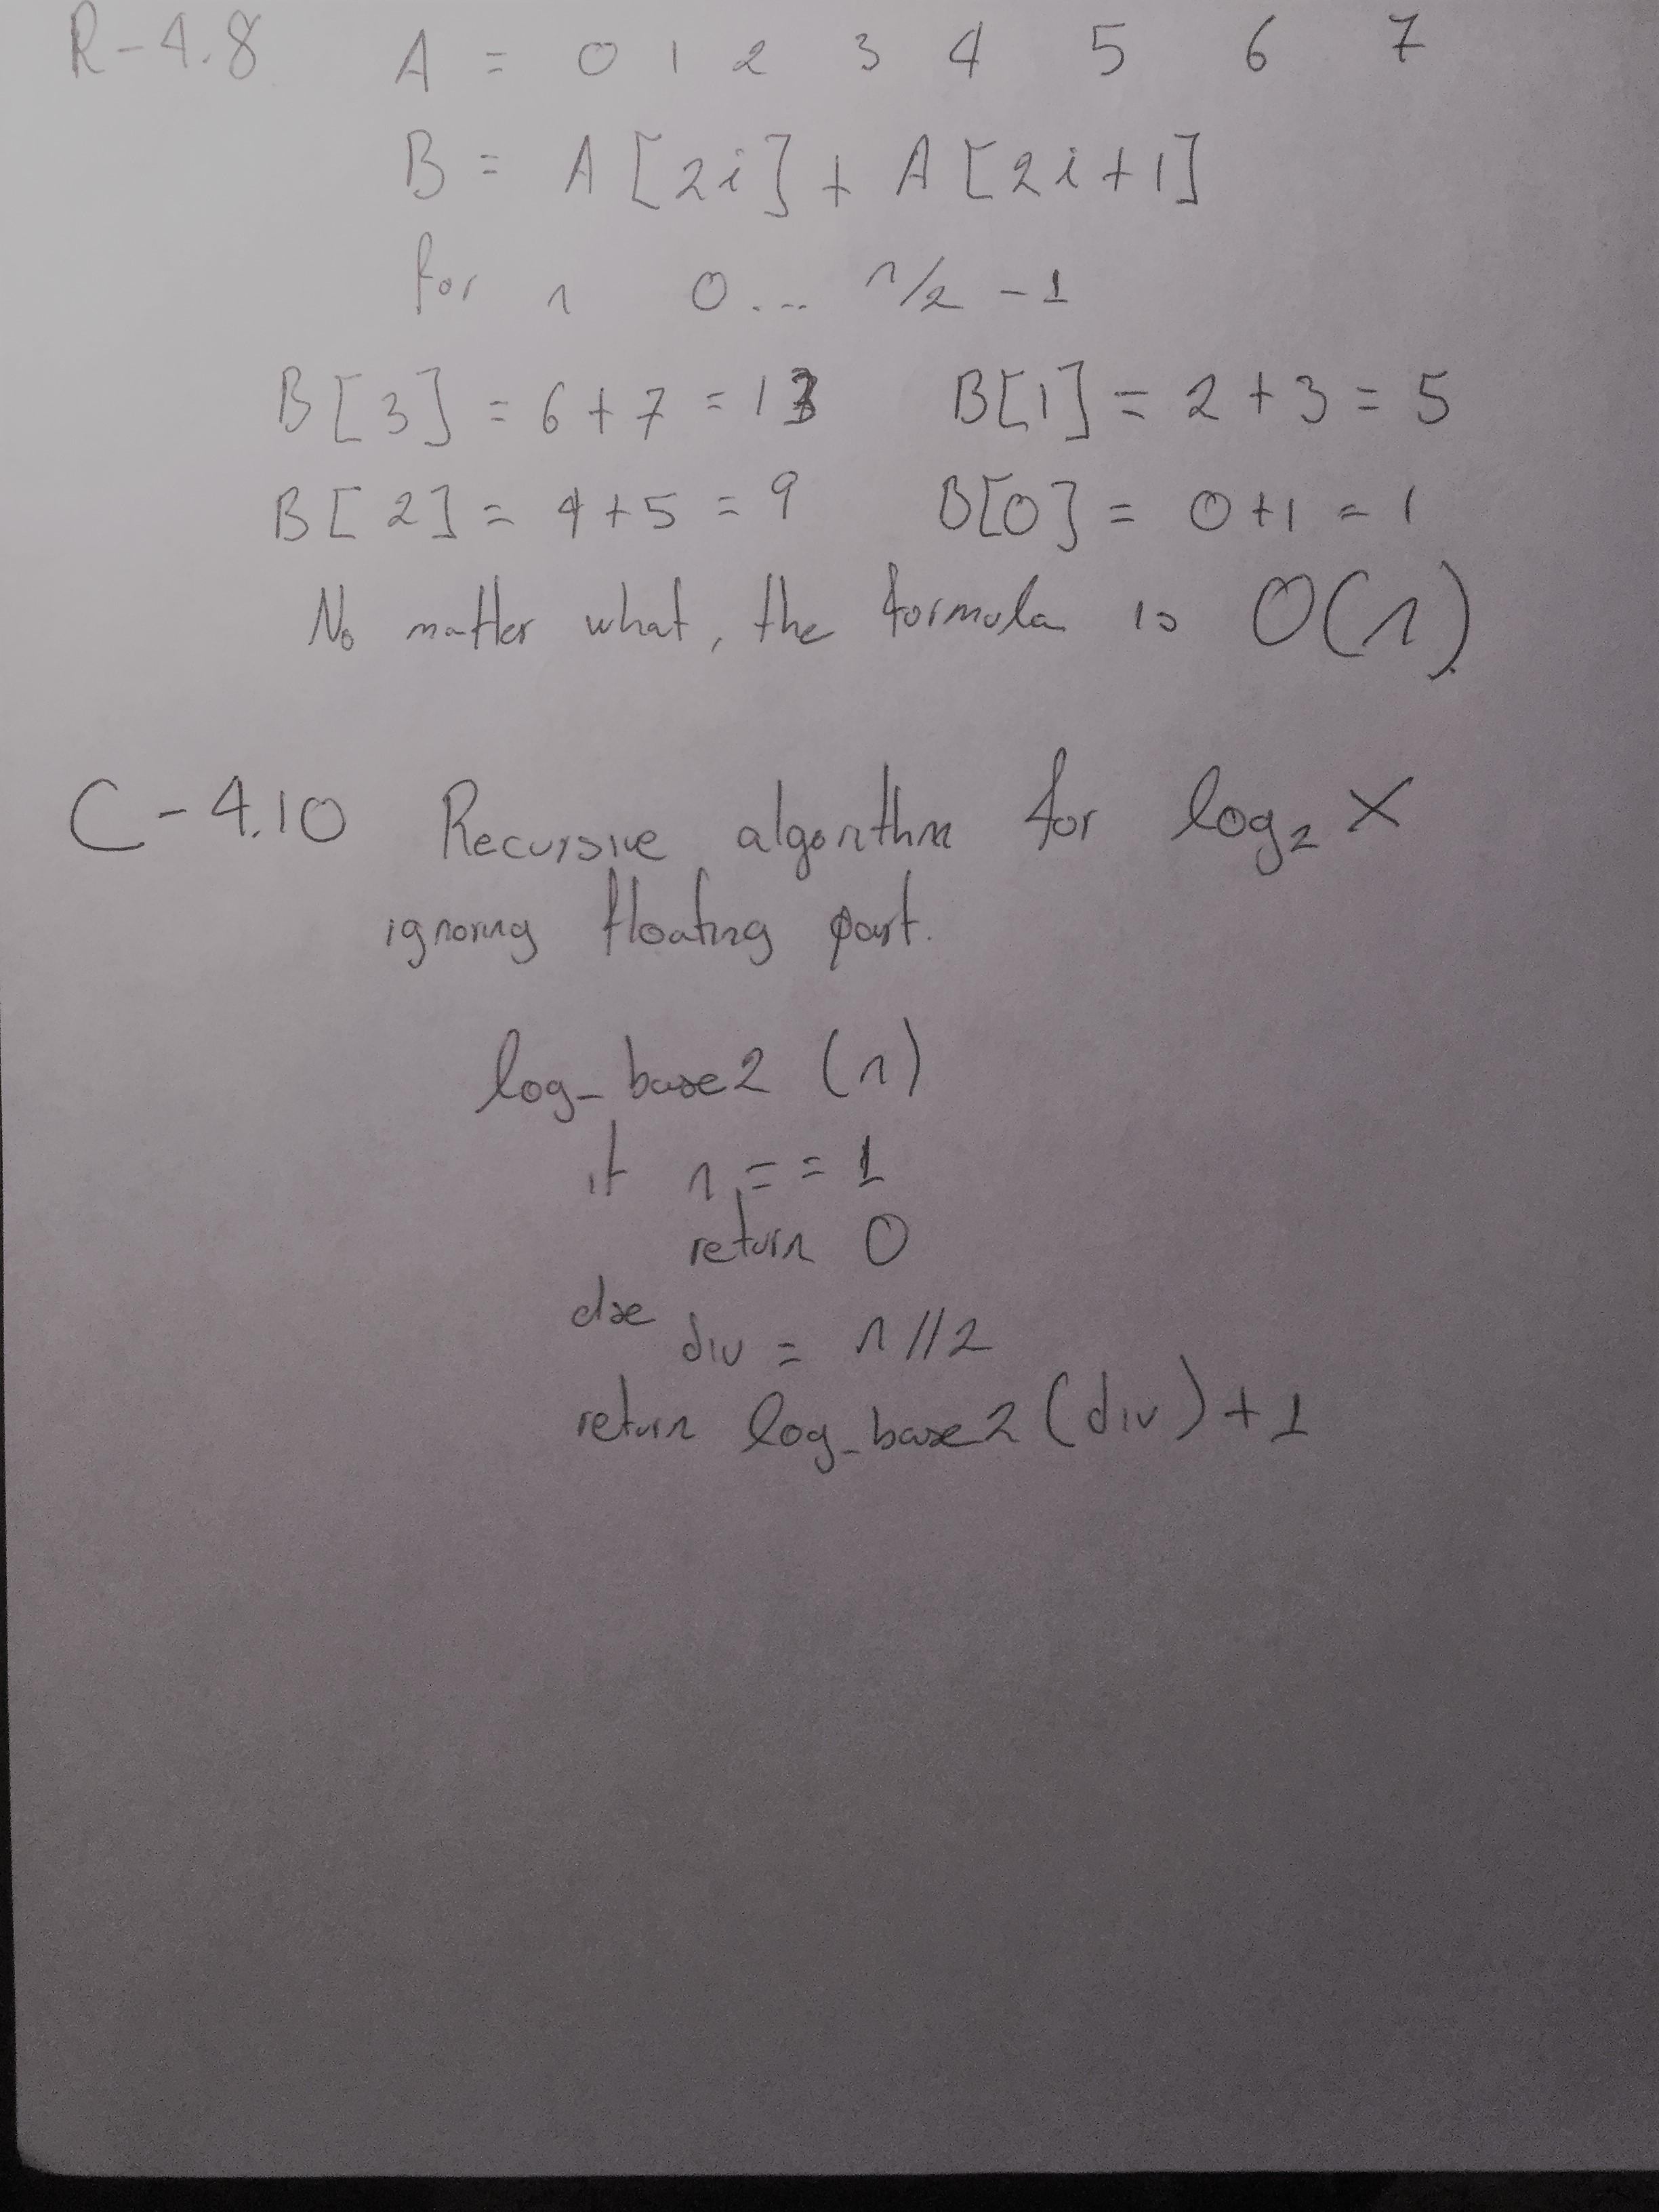 R-4.8 A = 0 1 2 3 4 5 6 7
B = A[2i] + A[2i+1]
for n 0... n/2 - 1
B[3] = 6+7 = 13 B[1] = 2+3 = 5
B[2] = 4+5 = 9 B[0] = 0+1 = 1
No matter what, the formula is O(n)
C-4.10 Recursive algorithm for log₂ X
ignoring floating part.
log_base2 (n)
if n == 1
return 0
else
div = n//2
return log_base2(div)+1